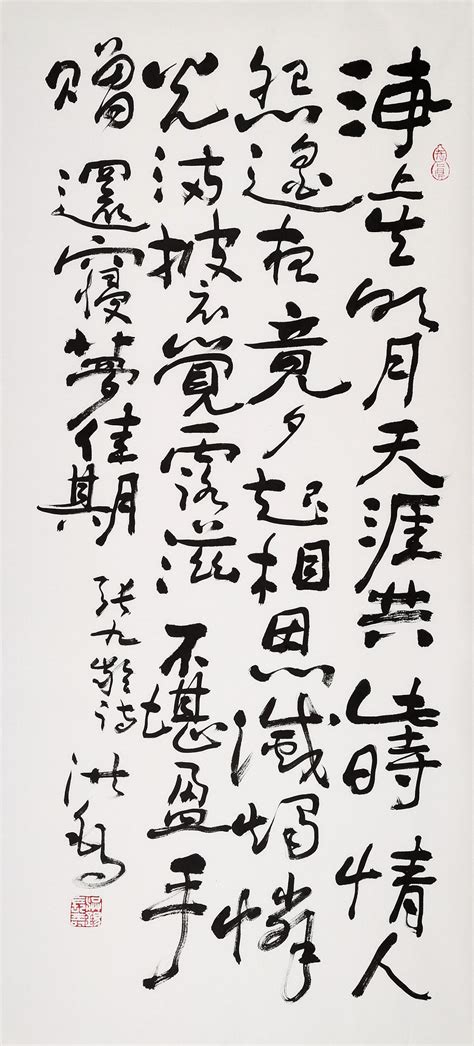 海上生明月天涯共此時情人
怨遙夜竟夕起相思滅燭憐
光满披衣覺露滋不堪盈手
赠還寢夢佳期
张九齡诗 洪